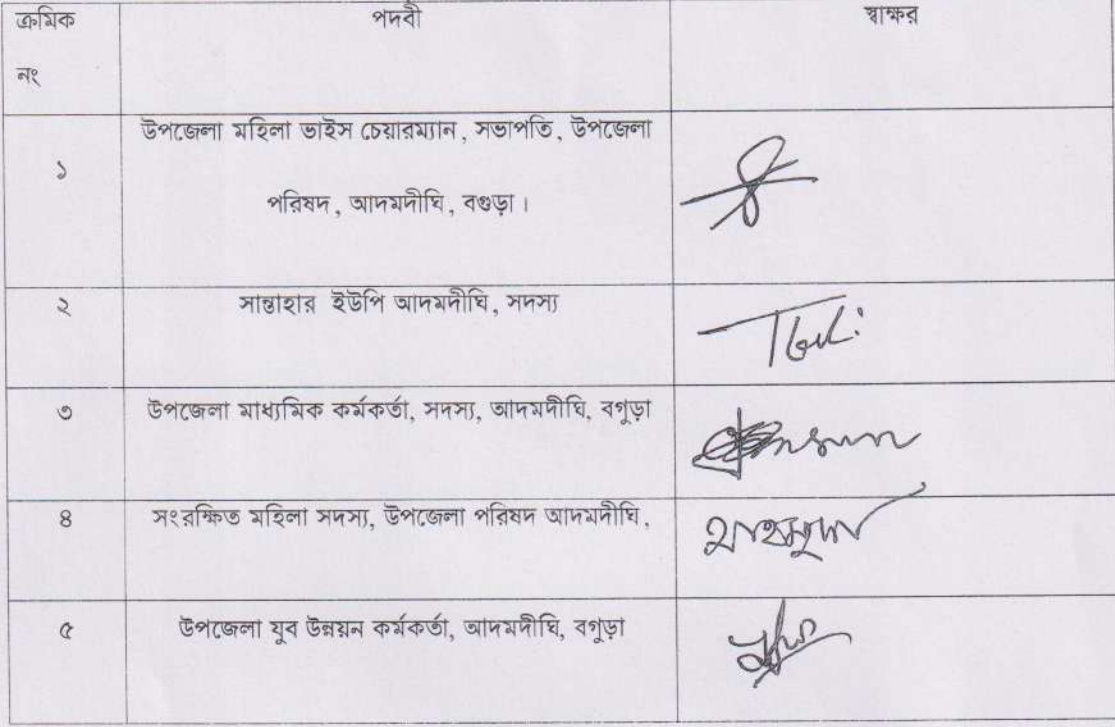 ক্রমিক
নং
পদবী
স্বাক্ষর
১
উপজেলা মহিলা ভাইস চেয়ারম্যান, সভাপতি, উপজেলা
পরিষদ, আদমদীঘি, বগুড়া।
২
সান্তাহার ইউপি আদমদীঘি, সদস্য
৩
উপজেলা মাধ্যমিক কর্মকর্তা, সদস্য, আদমদীঘি, বগুড়া
৪
সংরক্ষিত মহিলা সদস্য, উপজেলা পরিষদ আদমদীঘি,
মাহমুদা
৫
উপজেলা যুব উন্নয়ন কর্মকর্তা, আদমদীঘি, বগুড়া